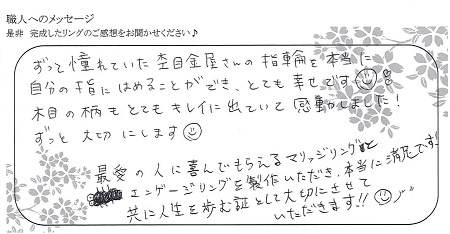 職人へのメッセージ
是非 完成したリングのご感想をお聞かせください♪
ずっと憧れていた杢目金屋さんの指輪を本当に
自分の指にはめることができ、とても幸せです
木目の柄もとてもキレイに出ていて感動しました!
ずっと大切にします
最愛の人に喜んでもらえるマリッジリングと
エンゲージリングを製作いただき、本当に満足です!
共に人生を歩む証として大切にさせて
いただきます!!